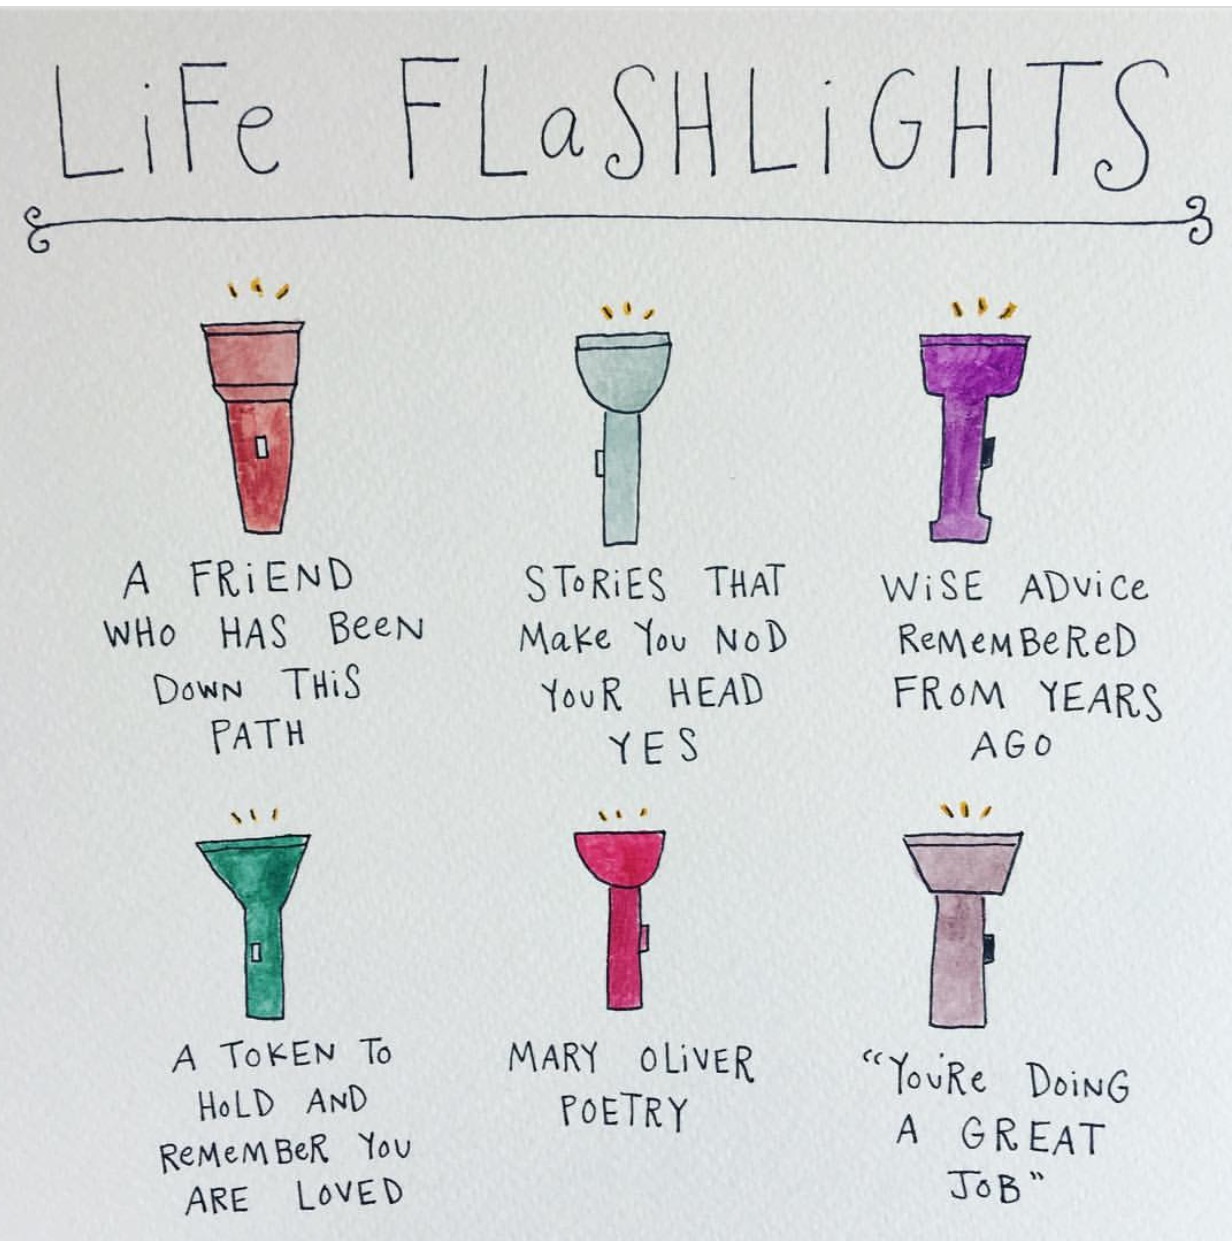 LiFe FLaSHLiGHTS
A FRiEND
WHO HAS BeeN
DOWN THiS
PATH
SToRiES THAT
Make You NOD
YouR HEAD
YES
WiSE ADvice
ReMeMBeReD
FROM YEARS
AGO
A ToKEN To
HoLD AND
ReMeMBeR You
ARE LOVED
MARY OLiVER
POETRY
“You're DoiNG
A GREAT
JoB”